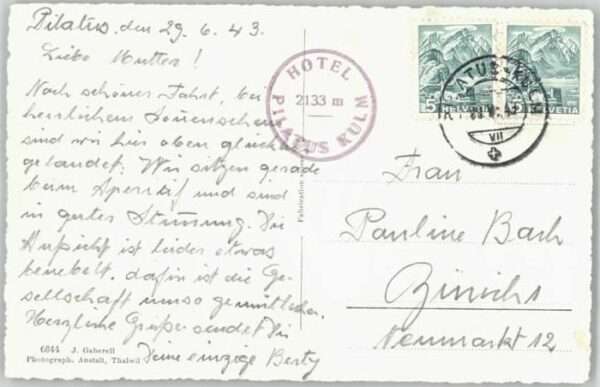 Pilatus, den 29.6.43.
Liebe Mutter!
Nach schöner Fahrt, bei
herrlichem Sonnenschein
sind wir hier oben glücklich
gelandet. Wir sitzen gerade
beim Aperitif und sind
in guter Stimmung. Die
Aussicht ist leider etwas
benebelt, dafür ist die Ge-
sellschaft umso gemütlicher.
Herzliche Grüsse sendet Dir
Deine einzige Berty
6844 J. Gaberell
Photograph. Anstalt, Thalwil
HOTEL
2133 m
PILATUS KULM
Fabrikation
5 HELVETIA
5 HELVETIA
PILATUS-KULM
VII
Frau
Pauline Bach
Zürich 1
Neumarkt 12